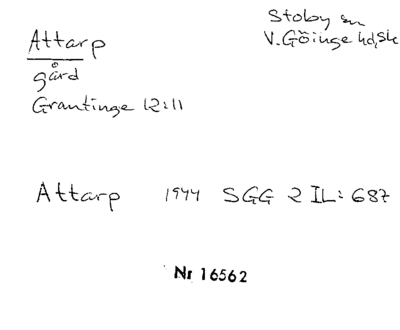 Attarp
gård
Grantinge 12:11
Stoby sn
V. Göinge hd, Sk
Attarp 1944 SGG 2 IL: 687
Nr 16562